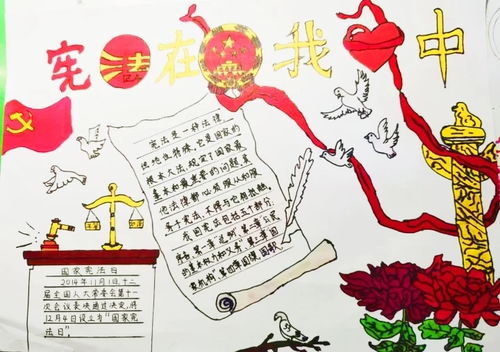 宪法在我中
宪法是一种法律
但地位特殊,它是国家的
根本大法,规定了国家最
基本和最重要的问题,其
他法律都必须服从和服
务于宪法,不得与它相抵触
我国宪法包括五个部分,
序言,第一章总纲,第二章公民
的基本权力和义务,第三章国
家机构,第四章国旗、国歌
国家宪法日
2014年11月1日,十二
届全国人大常委会第十一
次会议表决通过决定,将
12月4日设立为“国家宪
法日”。